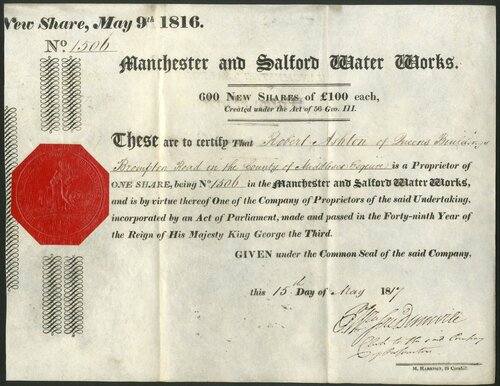 New Share, May 9th 1816.
No. 1506
Manchester and Salford Water Works.
600 NEW SHARES OF £100 each,
Created under the Act of 56 Geo. III.
These are to certify That Robert Ashton of Queens Buildings
Brompton Road in the County of Middlesex Esquire is a Proprietor of
ONE SHARE, being No 1506 in the Manchester and Salford Water Works,
and is by virtue thereof One of the Company of Proprietors of the said Undertaking,
incorporated by an Act of Parliament, made and passed in the Forty-ninth Year of
the Reign of His Majesty King George the Third.
GIVEN under the Common Seal of the said Company,
this 15th Day of May 1817
Clerk to the said Company
of Proprietors
M. HARRISON, 26 Cornhill.